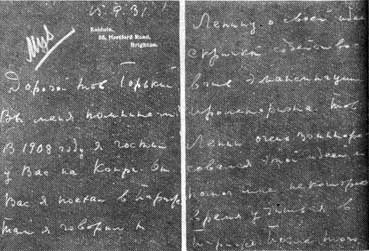 15.9.31
Hertford Road,
Brighton.
Дорогой тов Горький
Вы меня помните
В 1908 году я гостил
у Вас на Капри. От
Вас я поехал в Париж
Там я говорил
Ленину о своей идее
эмансипации
пролетариата. Тов.
Ленин очень заинтере
совался этой идеей и
помог мне некоторое
время учиться в
Париже. После того